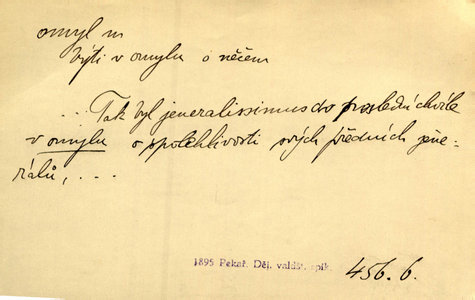 omyl m
býti v omylu o něčem
... Tak byl jeneralissimus do poslední chvíle
v omylu o spolehlivosti svých předních jene-
rálů, ...
1895 Pekař. Děj. valdšt. spik.
456. 6.